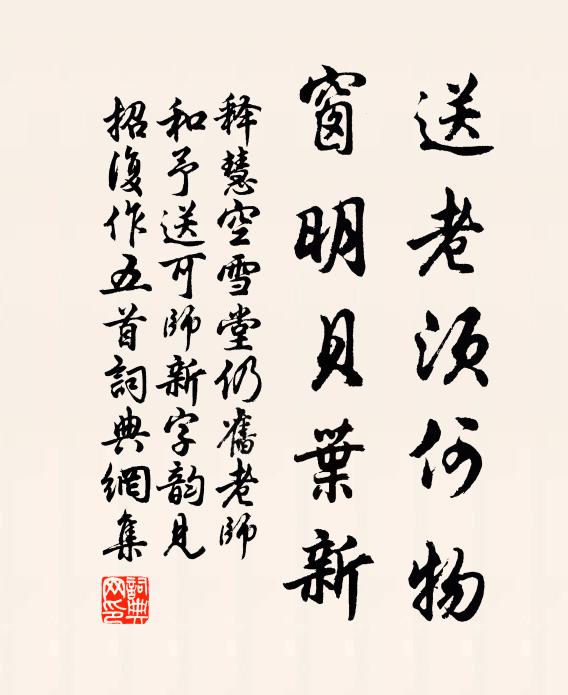 送老須何物
窗明貝葉新
释慧空雪堂仍舊老師
和予送可師新字韵見
招復作五首詞典網集
詞典網印